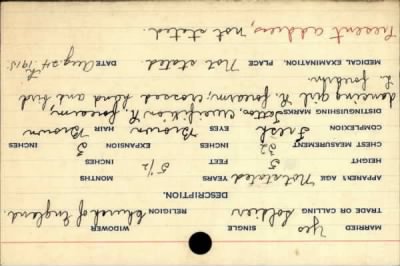 MARRIED Yes SINGLE WIDOWER
TRADE OR CALLING Soldier RELIGION Church of England.
DESCRIPTION.
APPARENT AGE Not stated YEARS MONTHS
HEIGHT 5 FEET 5 1/2 INCHES
CHEST MEASUREMENT 32 INCHES EXPANSION 3 INCHES
COMPLEXION Fresh EYES Brown HAIR Brown
DISTINGUISHING MARKS Tattoo, crucifix R. forearm,
dancing girl R. forearm; crossed hand and bird
L. forearm.
MEDICAL EXAMINATION. PLACE Not stated DATE Aug. 24th 1915.
Present address, not stated.